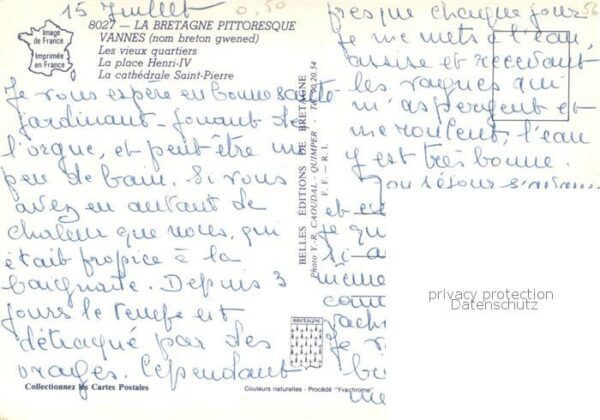 15 Juillet
0,50
56
8027 — LA BRETAGNE PITTORESQUE
VANNES (nom breton gwened)
Les vieux quartiers
La place Henri-IV
La cathédrale Saint-Pierre
Image
de France
Imprimée
en France
Je vous espère en bonne santé
jardinant - jouant de
l'orgue, et peut être un
peu de bain. Si vous
avez eu autant de
chaleur que nous, qui
était propice à la
baignade. Depuis 3
jours le temps est
détraqué par des
orages. Cependant
presque chaque jour
je me mets à l'eau,
assise et recevant
les vagues qui
m'aspergent et
me roulent, l'eau
y est très bonne.
séjour
et
Je qu
si a
même
Je
BELLES ÉDITIONS DE BRETAGNE
Photo Y.-R. CAOUDAL - QUIMPER -
F. F. - R. I.
BRETAGNE
privacy protection
Datenschutz
Collectionnez les Cartes Postales
Couleurs naturelles - Procédé "Yvachrome"